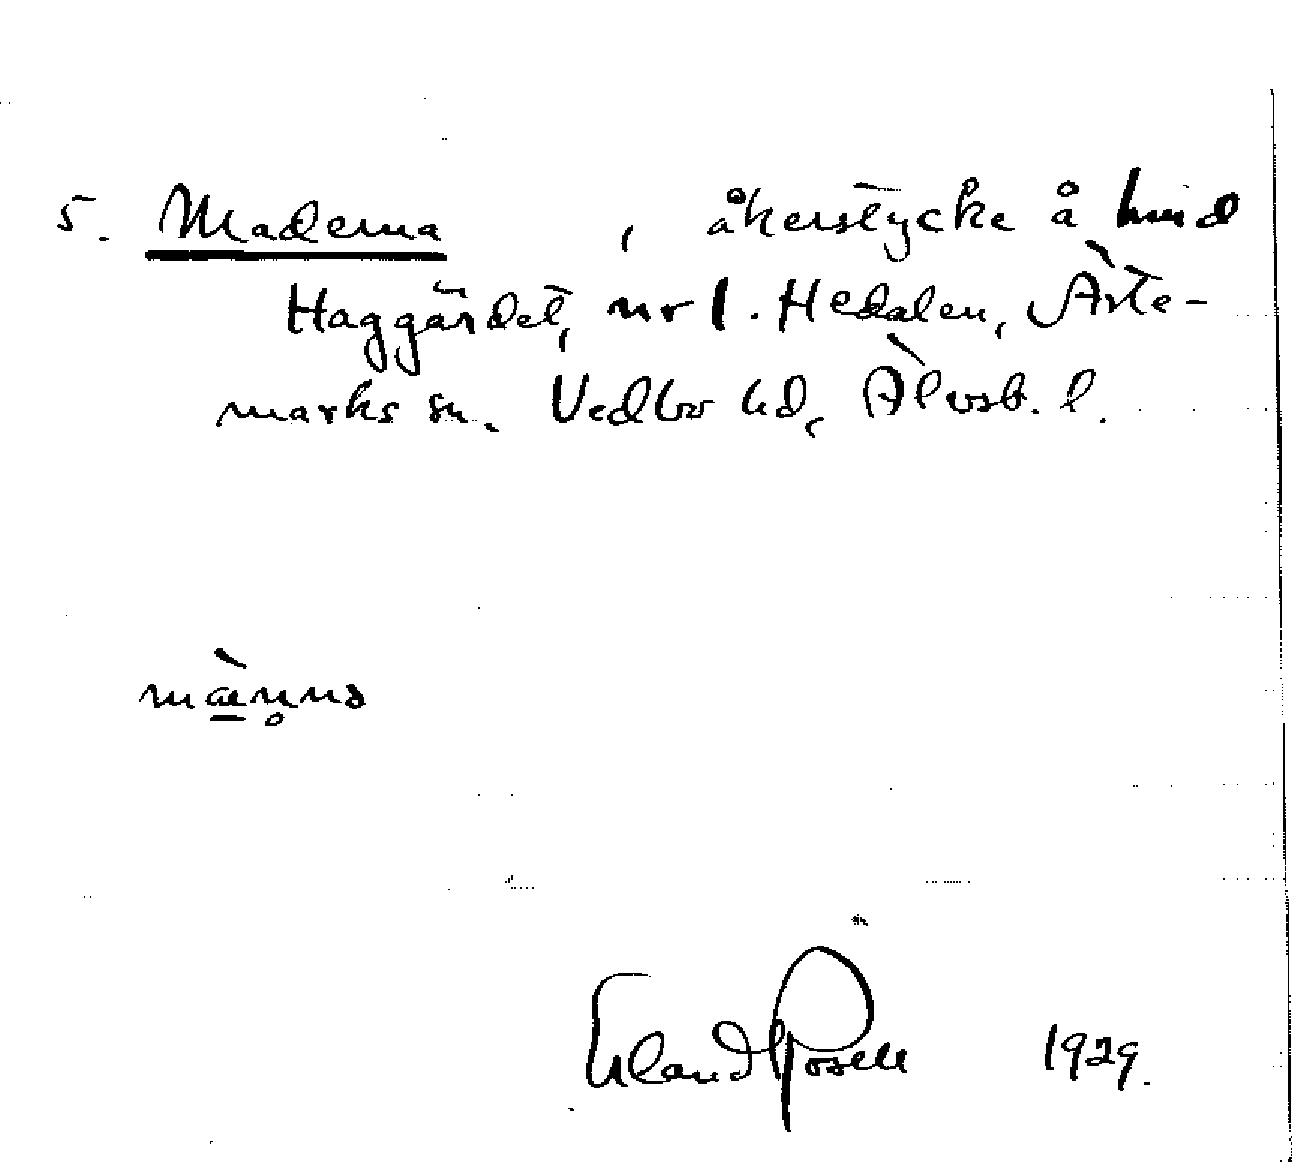 5. Maderna , åkerstycke å hmd
Haggärdet, nr 1. Hedalen, Ärte-
marks sn. Vedbo hd, Älvsb. l.
mæ̀n̥nɑ
Erland Rosell 1929.